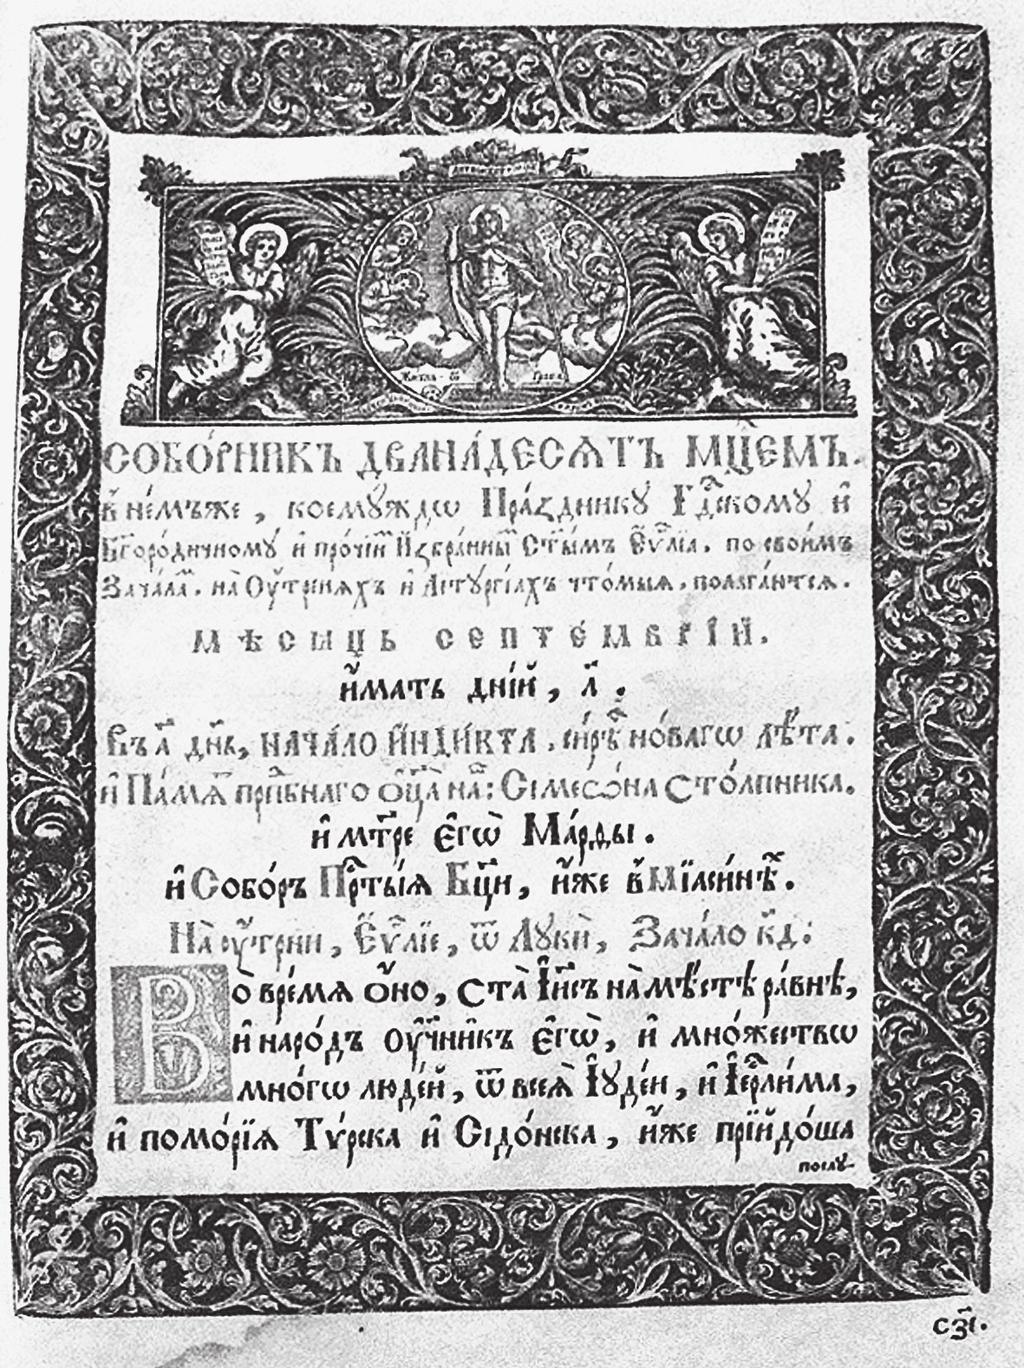 СОБО́РНИКЪ ДВАНА́ДЕСѦТЬ МЦ҇ЕМЪ.
В̾ не́мъже, коемꙋ́ждѡ Пра́зднику Гдⷭ҇кому и҆
Бг҃оро́дичному и҆ про́чіи̑м И҆збра́нны̑м Ст҃ы́мъ Еѵⷢ҇лїа. по свои́мъ
Зача́ла̑м. на̀ Оу҆́тринѧхъ и҆ Лїтꙋргі́ахъ что́мыѧ. полага́ютсѧ.
МѢСѦЦЬ СЕПТЕ́МВРІЙ.
и҆́мать дні́й, л҃.
Въ а҃ дн҃ь, НАЧА́ЛО И҆НДІ́КТА. си́рѣⷱ҇ но́вагѡ лѣ́та.
и҆ Па́мѧⷮ прпⷣбнаго Ѻ҆ц҃а̀ на́шⷢ: Сімеѡ́на Сто́лпника.
и҆ мт҃ре є҆гѡ̀ Ма́рды.
и҆ Собо́ръ Прⷭ҇ты́ѧ Бц҃ы, и҆́же в̾ Мїаси́нѣⷯ.
На̀ оу҆́трни, Еѵⷢ҇лїе, ѿ Лꙋкѝ, Зача́ло к҃д:
Во̀ вре́мѧ ѻ҆́но, ста̀ І҆и҃съ на̀ мѣ́стѣ ра́внѣ,
и҆ наро́дъ оу҆чн҃и̑къ є҆гѡ̀, и҆ мно́жествѡ
мно́гѡ люде́й, ѿ всеѧ̀ І҆уде́и, и҆ І҆ерⷭ҇ли́ма,
и҆ помо́рїѧ Тѵ́рска и҆ Сідо́нска, и҆́же прїидо́ша
послꙋ-